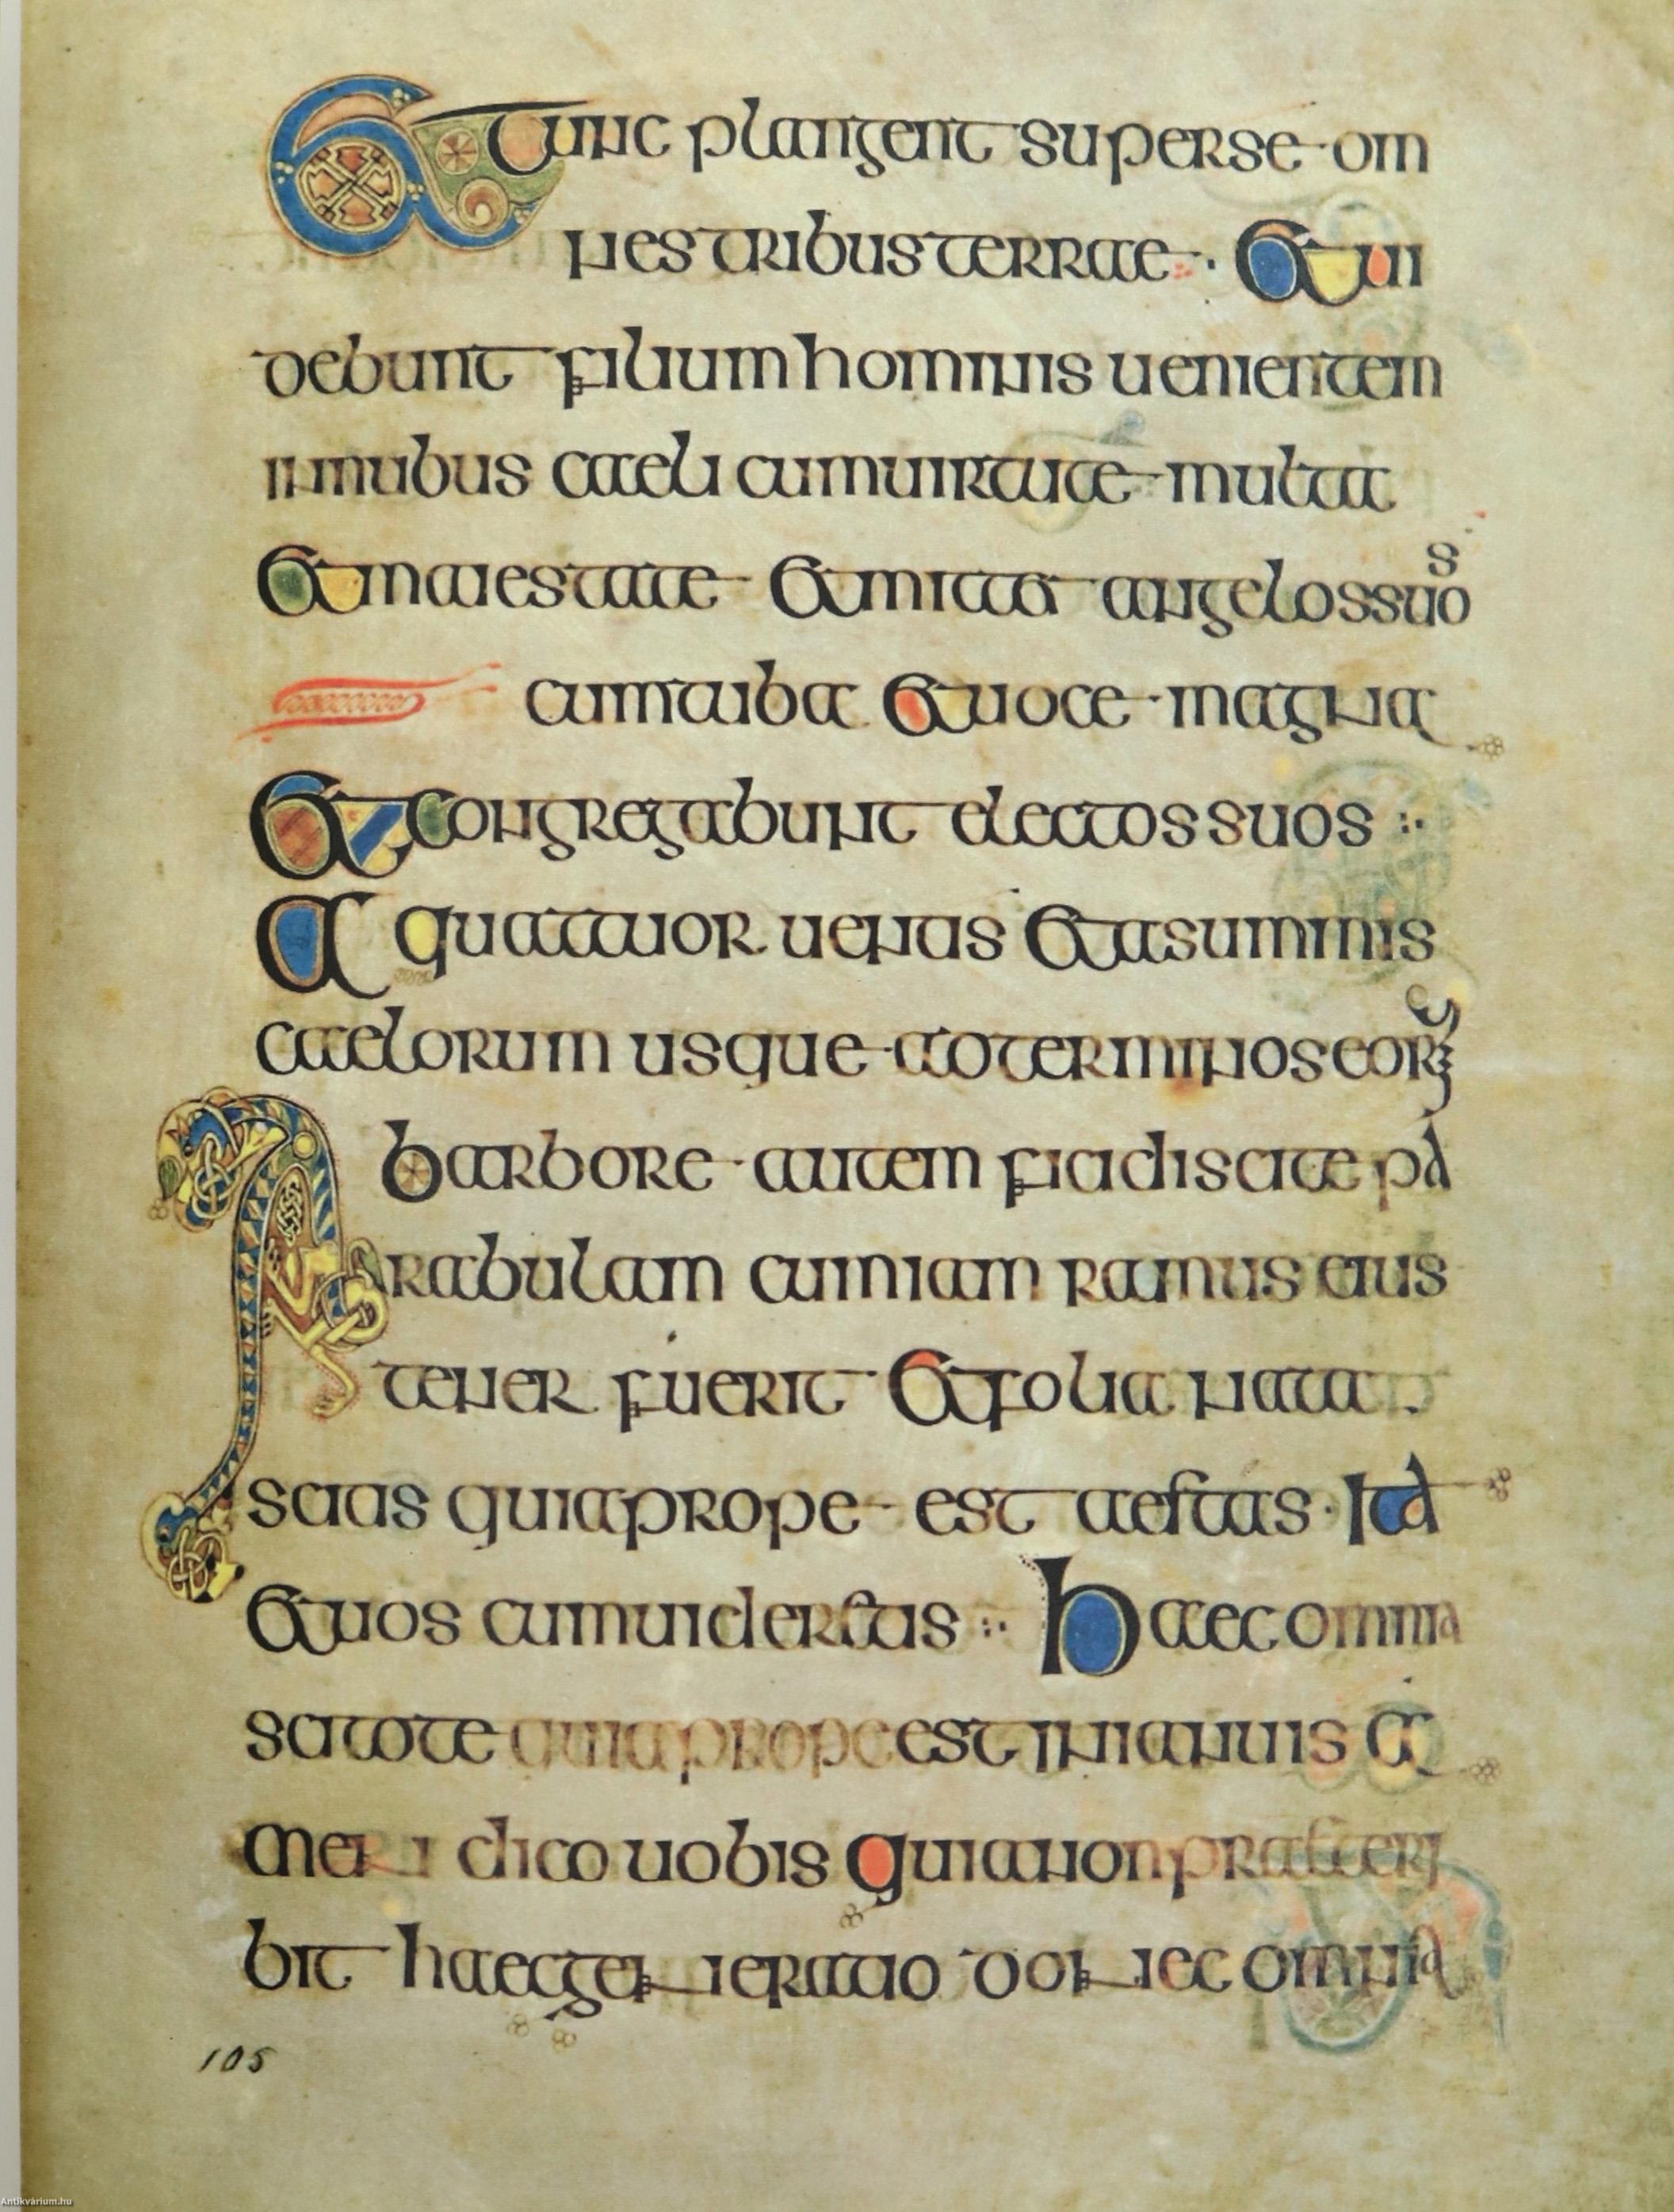 Et tunc plangent super se om
nes tribus terrae · Et ui
debunt filium hominis uenientem
in nubus caeli cum uirtute multa
Et maiestate Et mittet angelos suos
cum tuba Et uoce magna
Et congregabunt electos suos
A quattuor uentis Et a summis
caelorum usque ad terminos eorum
Ab arbore autem fici discite pa
rabulam cum iam ramus eius
tener fuerit Et folia nata
scitis quia prope est aestas · Ita
Et uos cum uideritis haec omnia
scitote quia prope est in ianuis A
men dico uobis quia non praeteri
bit haec generatio donec omnia
105
Antikvárium.hu